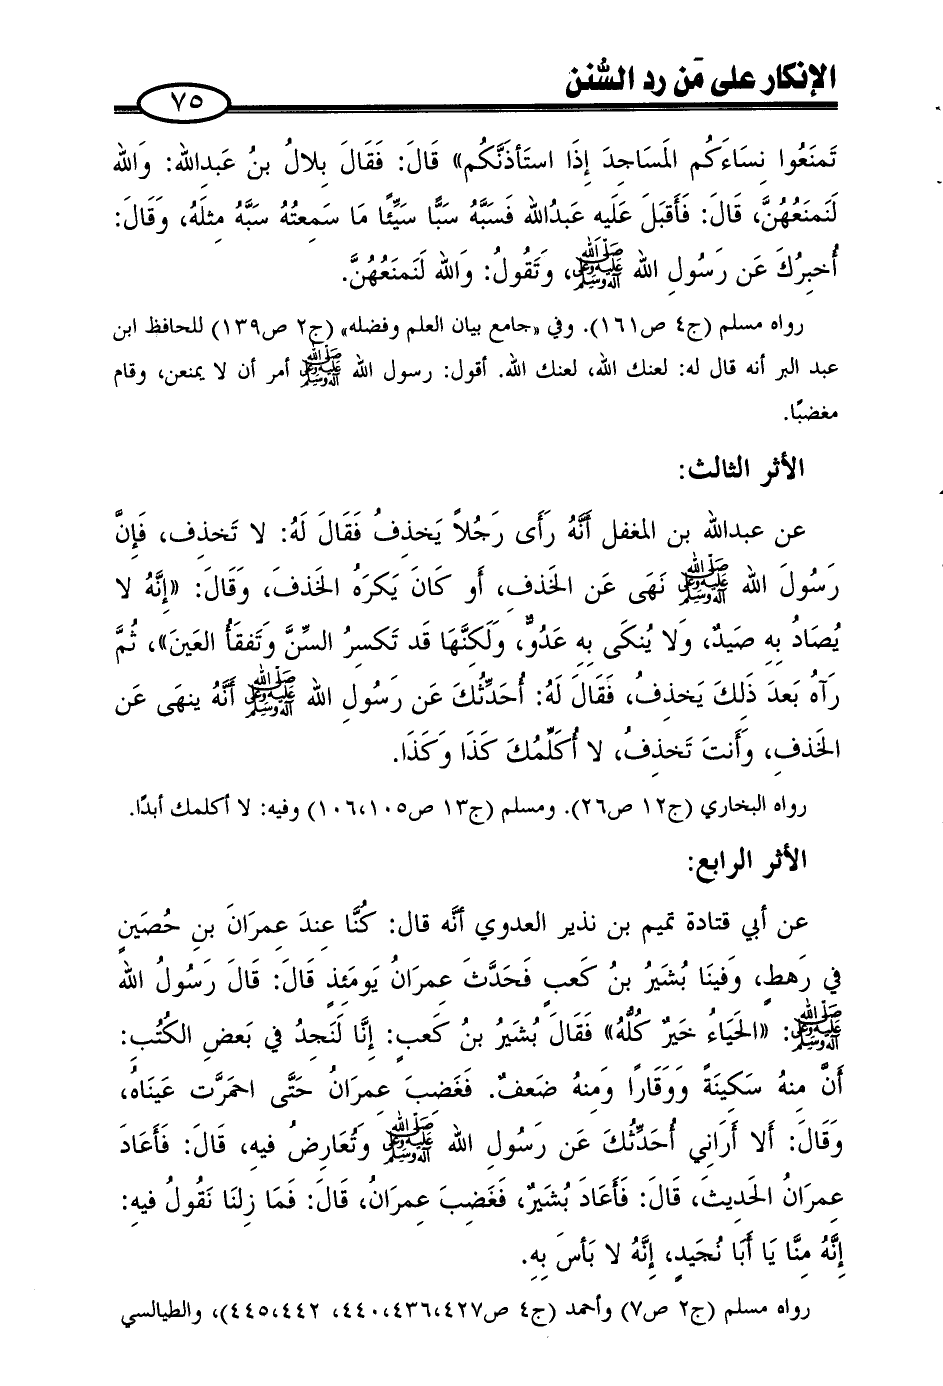 الإنكار على مَن رد السُّنن
٧٥
تَمنَعُوا نِسَاءَكُم المَسَاجِدَ إِذَا استَأذَنَّكُم» قَالَ: فَقَالَ بِلالُ بنُ عَبدِالله: وَالله
لَنَمنَعُهُنَّ، قَالَ: فَأَقبَلَ عَلَيهِ عَبدُالله فَسَبَّهُ سَبًّا سَيِّئًا مَا سَمِعتُهُ سَبَّهُ مِثلَهُ، وَقَالَ:
أُخبِرُكَ عَن رَسُولِ الله ﷺ، وَتَقُولُ: وَالله لَنَمنَعُهُنَّ.
رواه مسلم (ج٤ ص١٦١). وفي «جامع بيان العلم وفضله» (ج٢ ص١٣٩) للحافظ ابن
عبد البر أنه قال له: لعنك الله، لعنك الله. أقول: رسول الله ﷺ أمر أن لا يمنعن، وقام
مغضبًا.
الأثر الثالث:
عن عبدالله بن المغفل أَنَّهُ رَأَى رَجُلاً يَخذِفُ فَقَالَ لَهُ: لا تَخذِف، فَإِنَّ
رَسُولَ الله ﷺ نَهَى عَن الخَذفِ، أَو كَانَ يَكرَهُ الخَذفَ، وَقَالَ: «إِنَّهُ لا
يُصَادُ بِهِ صَيدٌ، وَلا يُنكَى بِهِ عَدُوٌّ، وَلَكِنَّهَا قَد تَكسِرُ السِّنَّ وَتَفقَأُ العَينَ»، ثُمَّ
رَآهُ بَعدَ ذَلِكَ يَخذِفُ، فَقَالَ لَهُ: أُحَدِّثُكَ عَن رَسُولِ الله ﷺ أَنَّهُ ينهَى عَن
الخَذفِ، وَأَنتَ تَخذِفُ، لا أُكَلِّمُكَ كَذَا وَكَذَا.
رواه البخاري (ج١٢ ص٢٦). ومسلم (ج١٣ ص١٠٥،١٠٦) وفيه: لا أكلمك أبدًا.
الأثر الرابع:
عن أبي قتادة تميم بن نذير العدوي أنَّه قال: كُنَّا عِندَ عِمرَانَ بنِ حُصَينٍ
في رَهطٍ، وَفِينَا بُشَيرُ بنُ كَعبٍ فَحَدَّثَ عِمرَانُ يَومَئِذٍ قَالَ: قَالَ رَسُولُ الله
ﷺ: «الحَيَاءُ خَيرٌ كُلُّهُ» فَقَالَ بُشَيرُ بنُ كَعبٍ: إِنَّا لَنَجِدُ في بَعضِ الكُتُبِ:
أَنَّ مِنهُ سَكِينَةً وَوَقَارًا وَمِنهُ ضَعفٌ. فَغَضِبَ عِمرَانُ حَتَّى احمَرَّت عَينَاهُ،
وَقَالَ: أَلا أَرَانِي أُحَدِّثُكَ عَن رَسُولِ الله ﷺ وَتُعَارِضُ فِيهِ، قَالَ: فَأَعَادَ
عِمرَانُ الحَدِيثَ، قَالَ: فَأَعَادَ بُشَيرٌ، فَغَضِبَ عِمرَانُ، قَالَ: فَمَا زِلنَا نَقُولُ فِيهِ:
إِنَّهُ مِنَّا يَا أَبَا نُجَيدٍ، إِنَّهُ لا بَأسَ بِهِ.
رواه مسلم (ج٢ ص٧) وأحمد (ج٤ ص٤٢٧،٤٣٦،٤٤٠، ٤٤٢،٤٤٥)، والطيالسي